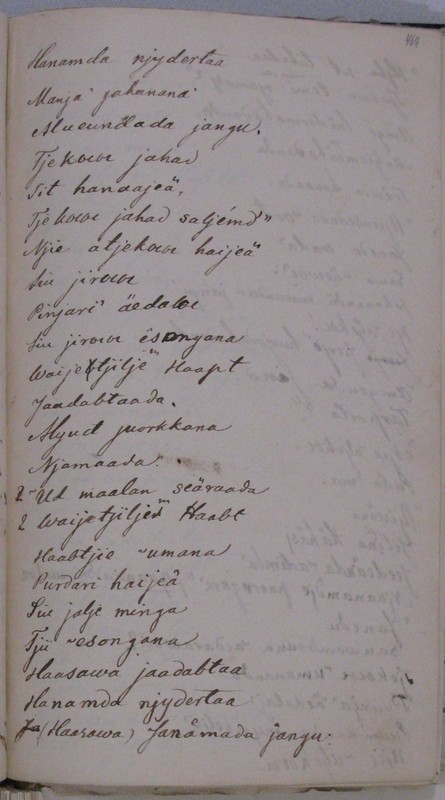 469
Hanamda njydertaa
Manja' jahanana'
Mueundada jangu.
Tjekowe jahad
Sit hanaajeä,
Tjekowe jahad saljémd"
Njie atjekowe haijeä
Siu jirowe
Pinjari' äedalwe
Siu jirowe ësongana
Waijetjilje Haapt
Jaadabtaada.
Myud juorkkana
Njamaada.
2 Ud maalan seäraada
2 Waijetjiljen Haabt
Haabtjio umana
Purdari haijeä
Siu jalje minga
Tjii esongana
Haasawa jaadabtaa
Hanamda njydertaa
(Haasawa) Janämada jangu.